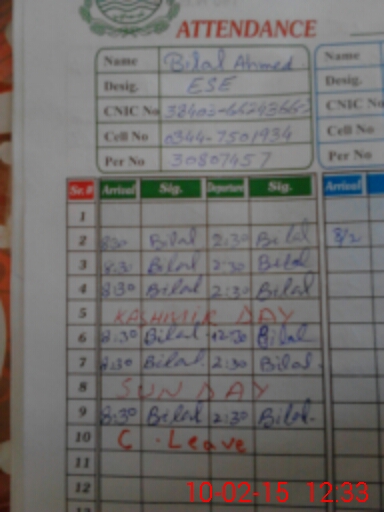 ATTENDANCE
Name Bilal Ahmed Name
Desig. ESE Desig.
CNIC No CNIC No
Cell No 0344-7501934 Cell No
Per No 30807457 Per No
Sr.# Arrival Sig. Departure Sig. Arrival
1
2 8:30 Bilal 2:30 Bilal 8/2
3 8:30 Bilal 2:30 Bilal
4 8:30 Bilal 2:30 Bilal
5 KASHMIR DAY
6 8:30 Bilal 12:30 Bilal
7 8:30 Bilal 2:30 Bilal.
8 SUNDAY
9 8:30 Bilal 2:30 Bilal.
10 C. Leave
11
12
10-02-15 12:33